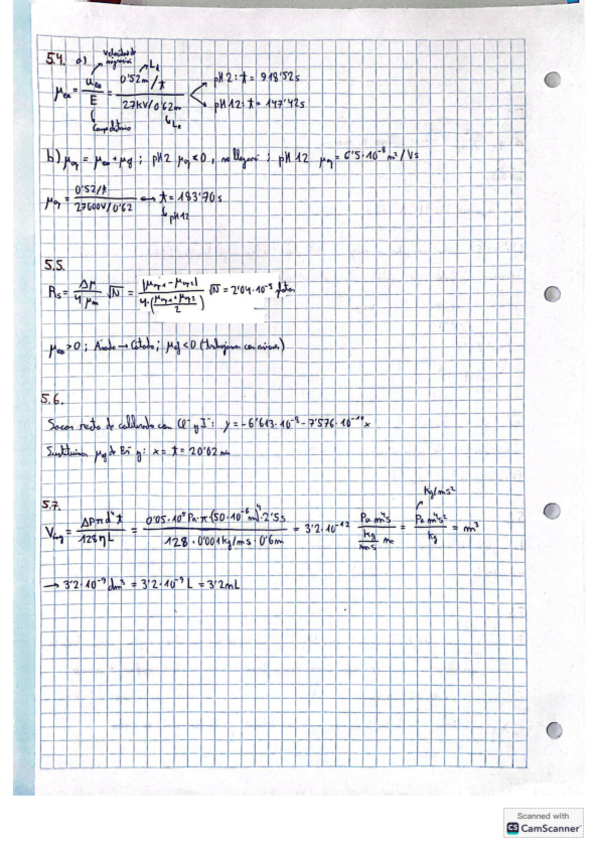 5.4. a) velocidad de migración
μeo = ueo / E = 0'52m/t / 27kV/0'62m
L1
pH2: t = 918'52s
pH12: t = 147'42s
Campo eléctrico
b) μap = μeo + μef ; pH2 μap<0, no llegará ; pH12 μap = 6'5·10⁻⁸ m²/Vs
μap = 0'52/t / 27600V/0'62 → t = 183'70s
pH12
5.5.
Rs = Δμ / 4 μm √N = |μap1 - μap2| / 4·(μap1+μap2 / 2) √N = 2'04·10⁻⁵
μeo>0 ; Ánodo → Cátodo ; μef<0
5.6.
Sacar recta de calibrado con Cl⁻ y I⁻: y = -6'613·10⁻⁸ - 7'576·10⁻¹⁰x
Sustituimos μef de Br⁻ y: x = t = 20'02
5.7.
Viny = ΔPπd⁴t / 128ηL = 0'05·10⁵Pa·π(50·10⁻⁶m)⁴·2'5s / 128·0'001kg/ms·0'6m = 3'2·10⁻¹² Pa m⁴s / kg/ms m = Pa m⁴s² / kg = m³
kg/ms²
→ 3'2·10⁻⁹ dm³ = 3'2·10⁻⁹ L = 3'2mL
Scanned with
CS CamScanner